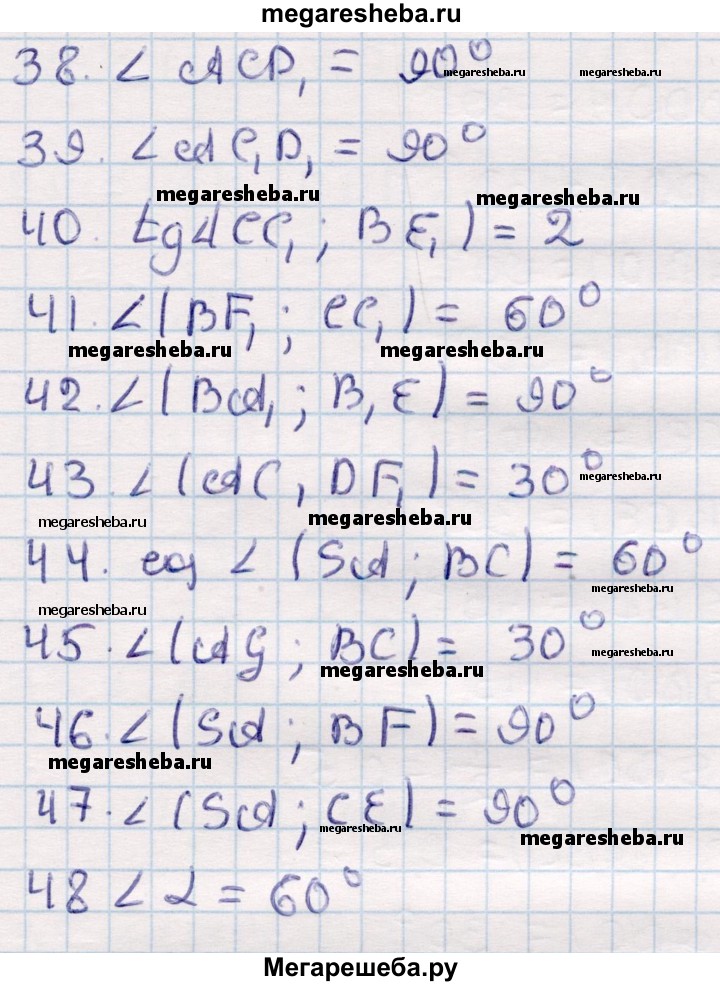 megaresheba.ru
38. ∠ ACD₁ = 90°
megaresheba.ru megaresheba.ru
39. ∠ AC₁D₁ = 90°
megaresheba.ru megaresheba.ru
40. tg∠(CC₁; BE₁) = 2
41. ∠(BF₁; CC₁) = 60°
megaresheba.ru megaresheba.ru
42. ∠(BA₁; B₁E) = 90°
43. ∠(AC, DF₁) = 30°
megaresheba.ru
megaresheba.ru megaresheba.ru
44. ∠(SA; BC) = 60°
megaresheba.ru
megaresheba.ru
45. ∠(AG; BC) = 30°
megaresheba.ru megaresheba.ru
46. ∠(SA; BF) = 90°
megaresheba.ru
47. ∠(SA; CE) = 90°
megaresheba.ru megaresheba.ru
48 ∠ α = 60°
megaresheba.ru
Мегарешеба.ру